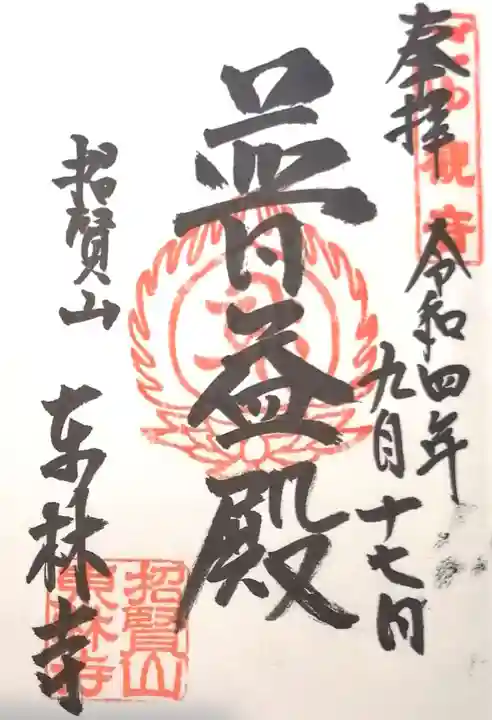 奉拝
令和四年
九月十七日
普益殿
招賢山
東林寺
招賢山
東林寺